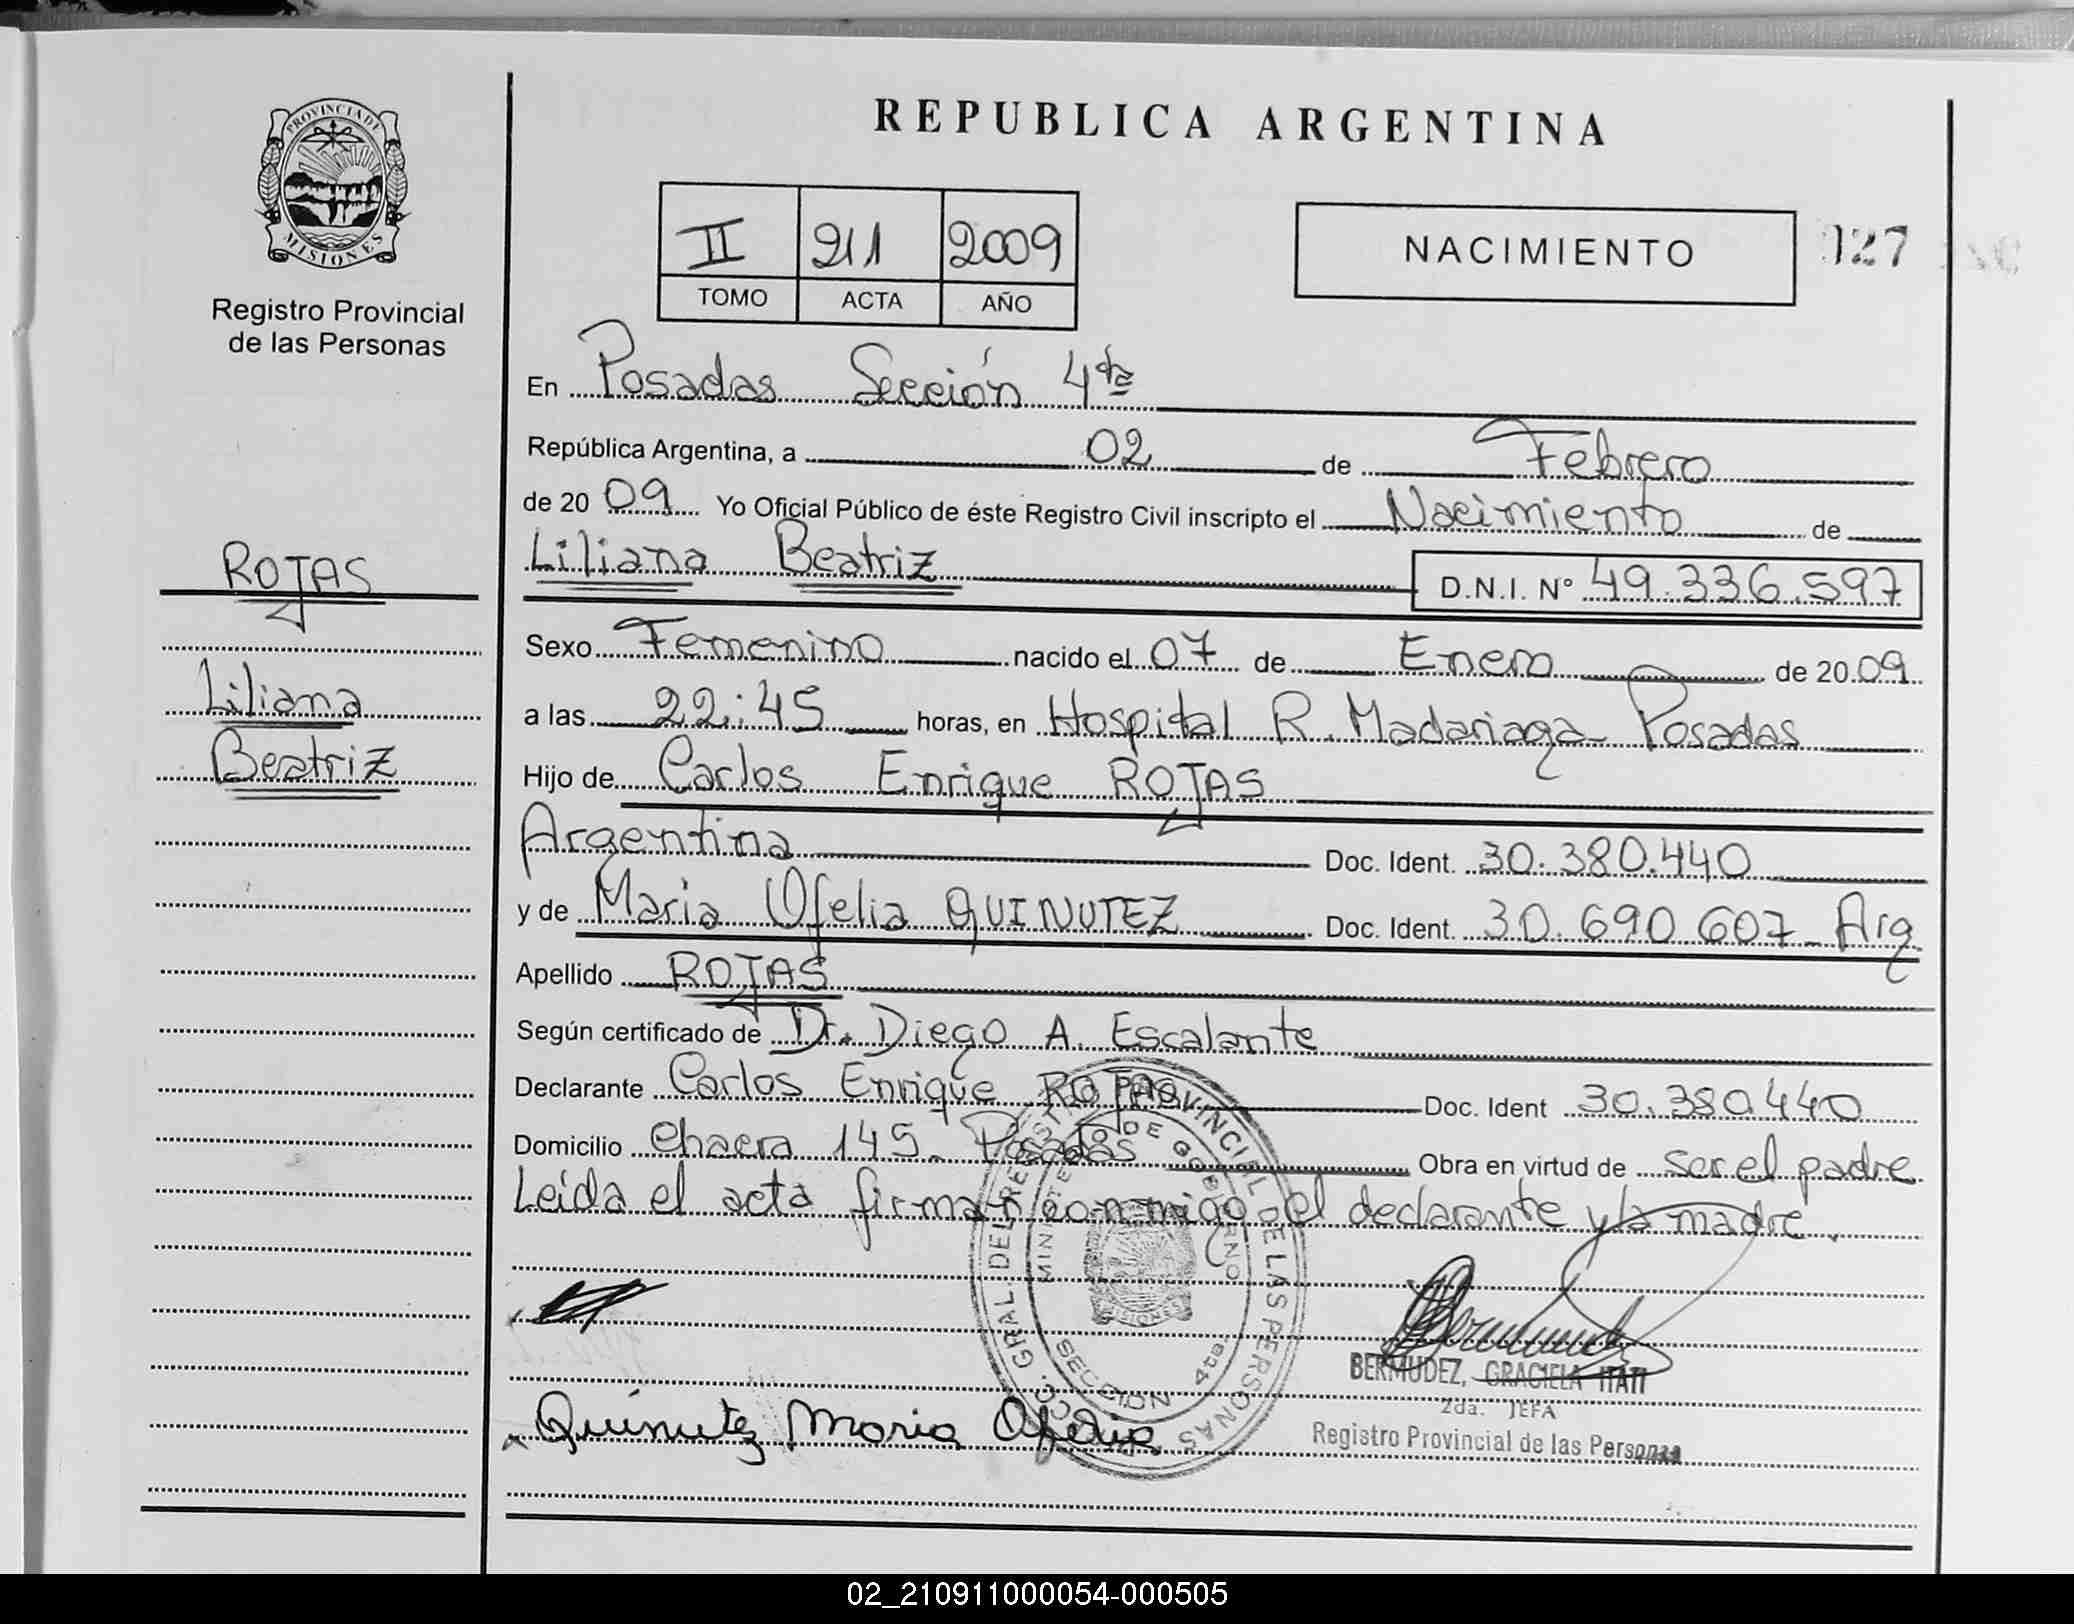 PROVINCIA DE
MISIONES
Registro Provincial
de las Personas
ROJAS
Liliana
Beatriz
REPUBLICA ARGENTINA
II 211 2009
TOMO ACTA AÑO
NACIMIENTO
127
En Posadas Sección 4ta
República Argentina, a 02 de Febrero
de 20 09 Yo Oficial Público de éste Registro Civil inscripto el Nacimiento de
Liliana Beatriz D.N.I. N° 49.336.597
Sexo Femenino nacido el 07 de Enero de 20 09
a las 22:45 horas, en Hospital R. Madariaga - Posadas
Hijo de Carlos Enrique ROJAS
Argentina Doc. Ident. 30.380.440
y de Maria Ofelia QUINUTEZ Doc. Ident. 30.690.607 - Arg
Apellido ROJAS
Según certificado de Dr. Diego A. Escalante
Declarante Carlos Enrique ROJAS Doc. Ident 30.380.440
Domicilio Chacra 145 - Posadas Obra en virtud de ser el padre
Leída el acta firman conmigo el declarante y la madre.
DCC. GRAL. DEL REGISTRO PROVINCIAL DE LAS PERSONAS
DE GOBIERNO
SECCION 4ta.
MISIONES
BERMUDEZ, GRACIELA ITATI
2da. JEFA
Registro Provincial de las Personas
Quinutez Maria Ofelia
02_210911000054-000505